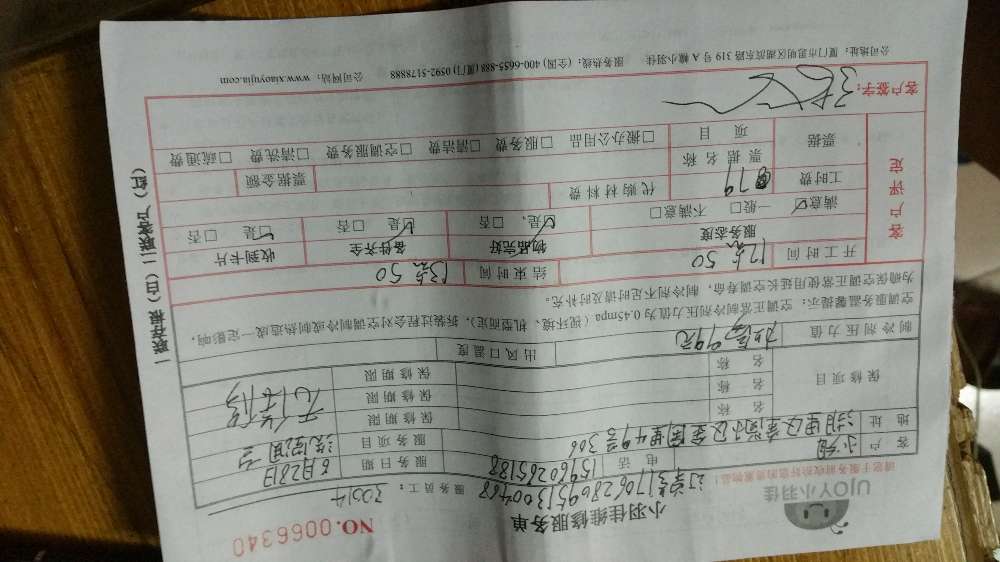 UJOY小羽佳
请您于服务前收拾好您的贵重物品！
小羽佳维修服务单
NO.0066340
订单号170628095130468
服务员工：30514
客户 小郑 电话 15960265188 服务日期 6月28日
地址 湖里区金尚小区金园里49号306 服务项目 洗空调
保修项目 名称 保修期限 无保修
名称 保修期限
名称 保修期限
制冷剂压力值 99元 出风口温度
空调服务温馨提示：空调正常制冷剂压力值为0.45mpa（视环境、机型而定），拆装过程会对空调制冷或制热造成一定影响，
为确保空调正常使用延长空调寿命，制冷剂不足时请及时补充。
客户评定
开工时间 12点50 结束时间 13点50
服务态度 物品完好 备件齐全 收到卡片
满意☑ 一般□ 不满意□ ☑是、□否 ☑是 □否 ☑是 □否
工时费 79 代购材料费
票据 票据名称 票据金额
项目 □搬办公用品 □服务费 □清洁费 □空调服务费 □清洗费 □疏通费
客户签字：
公司地址：厦门市思明区湖滨东路319号A幢小羽佳 服务热线：（全国）400-6655-888（厦门）0592-5178888 公司网站：www.xiaoyujia.com
一联存根（白）二联客户（红）